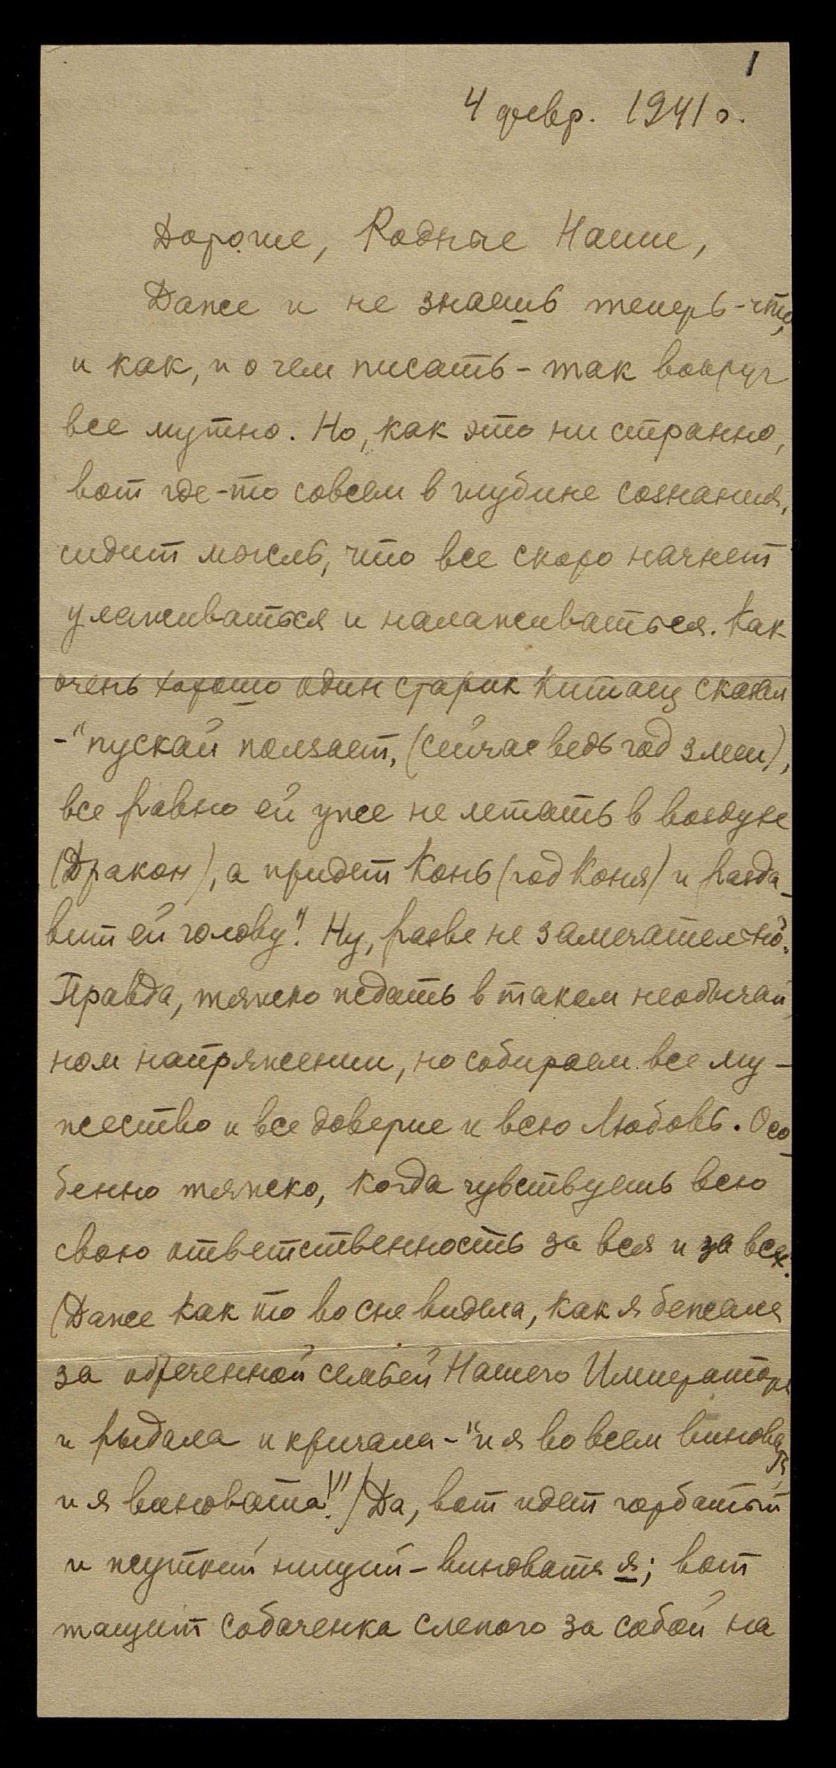 1
4 февр. 1941 г.
Дорогие, Родные Наши,
Даже и не знаешь теперь-что,
и как, и о чем писать - так вокруг
все мутно. Но, как это ни странно,
вот где-то совсем в глубине сознания,
сидит мысль, что все скоро начнет
улаживаться и налаживаться. Как
очень хорошо один старик Китаец сказал
-"пускай ползает, (сейчас ведь год змеи),
все равно ей уже не летать в воздухе
(Дракон), а придет Конь (год Коня) и разда-
вит ей голову". Ну, разве не замечательно?
Правда, тяжко ждать в таком необычай-
ном напряжении, но собираем все му-
жество и все доверие и всю Любовь. Осо-
бенно тяжко, когда чувствуешь всю
свою ответственность за вся и за всех.
(Даже как то во сне видела, как я бежала
за обреченной семьей Нашего Императора
и рыдала и кричала - "и я во всем виновата,
и я виновата!") Да, вот идет горбатый
и жуткий нищий - виновата я; вот
тащит собаченка слепого за собой на